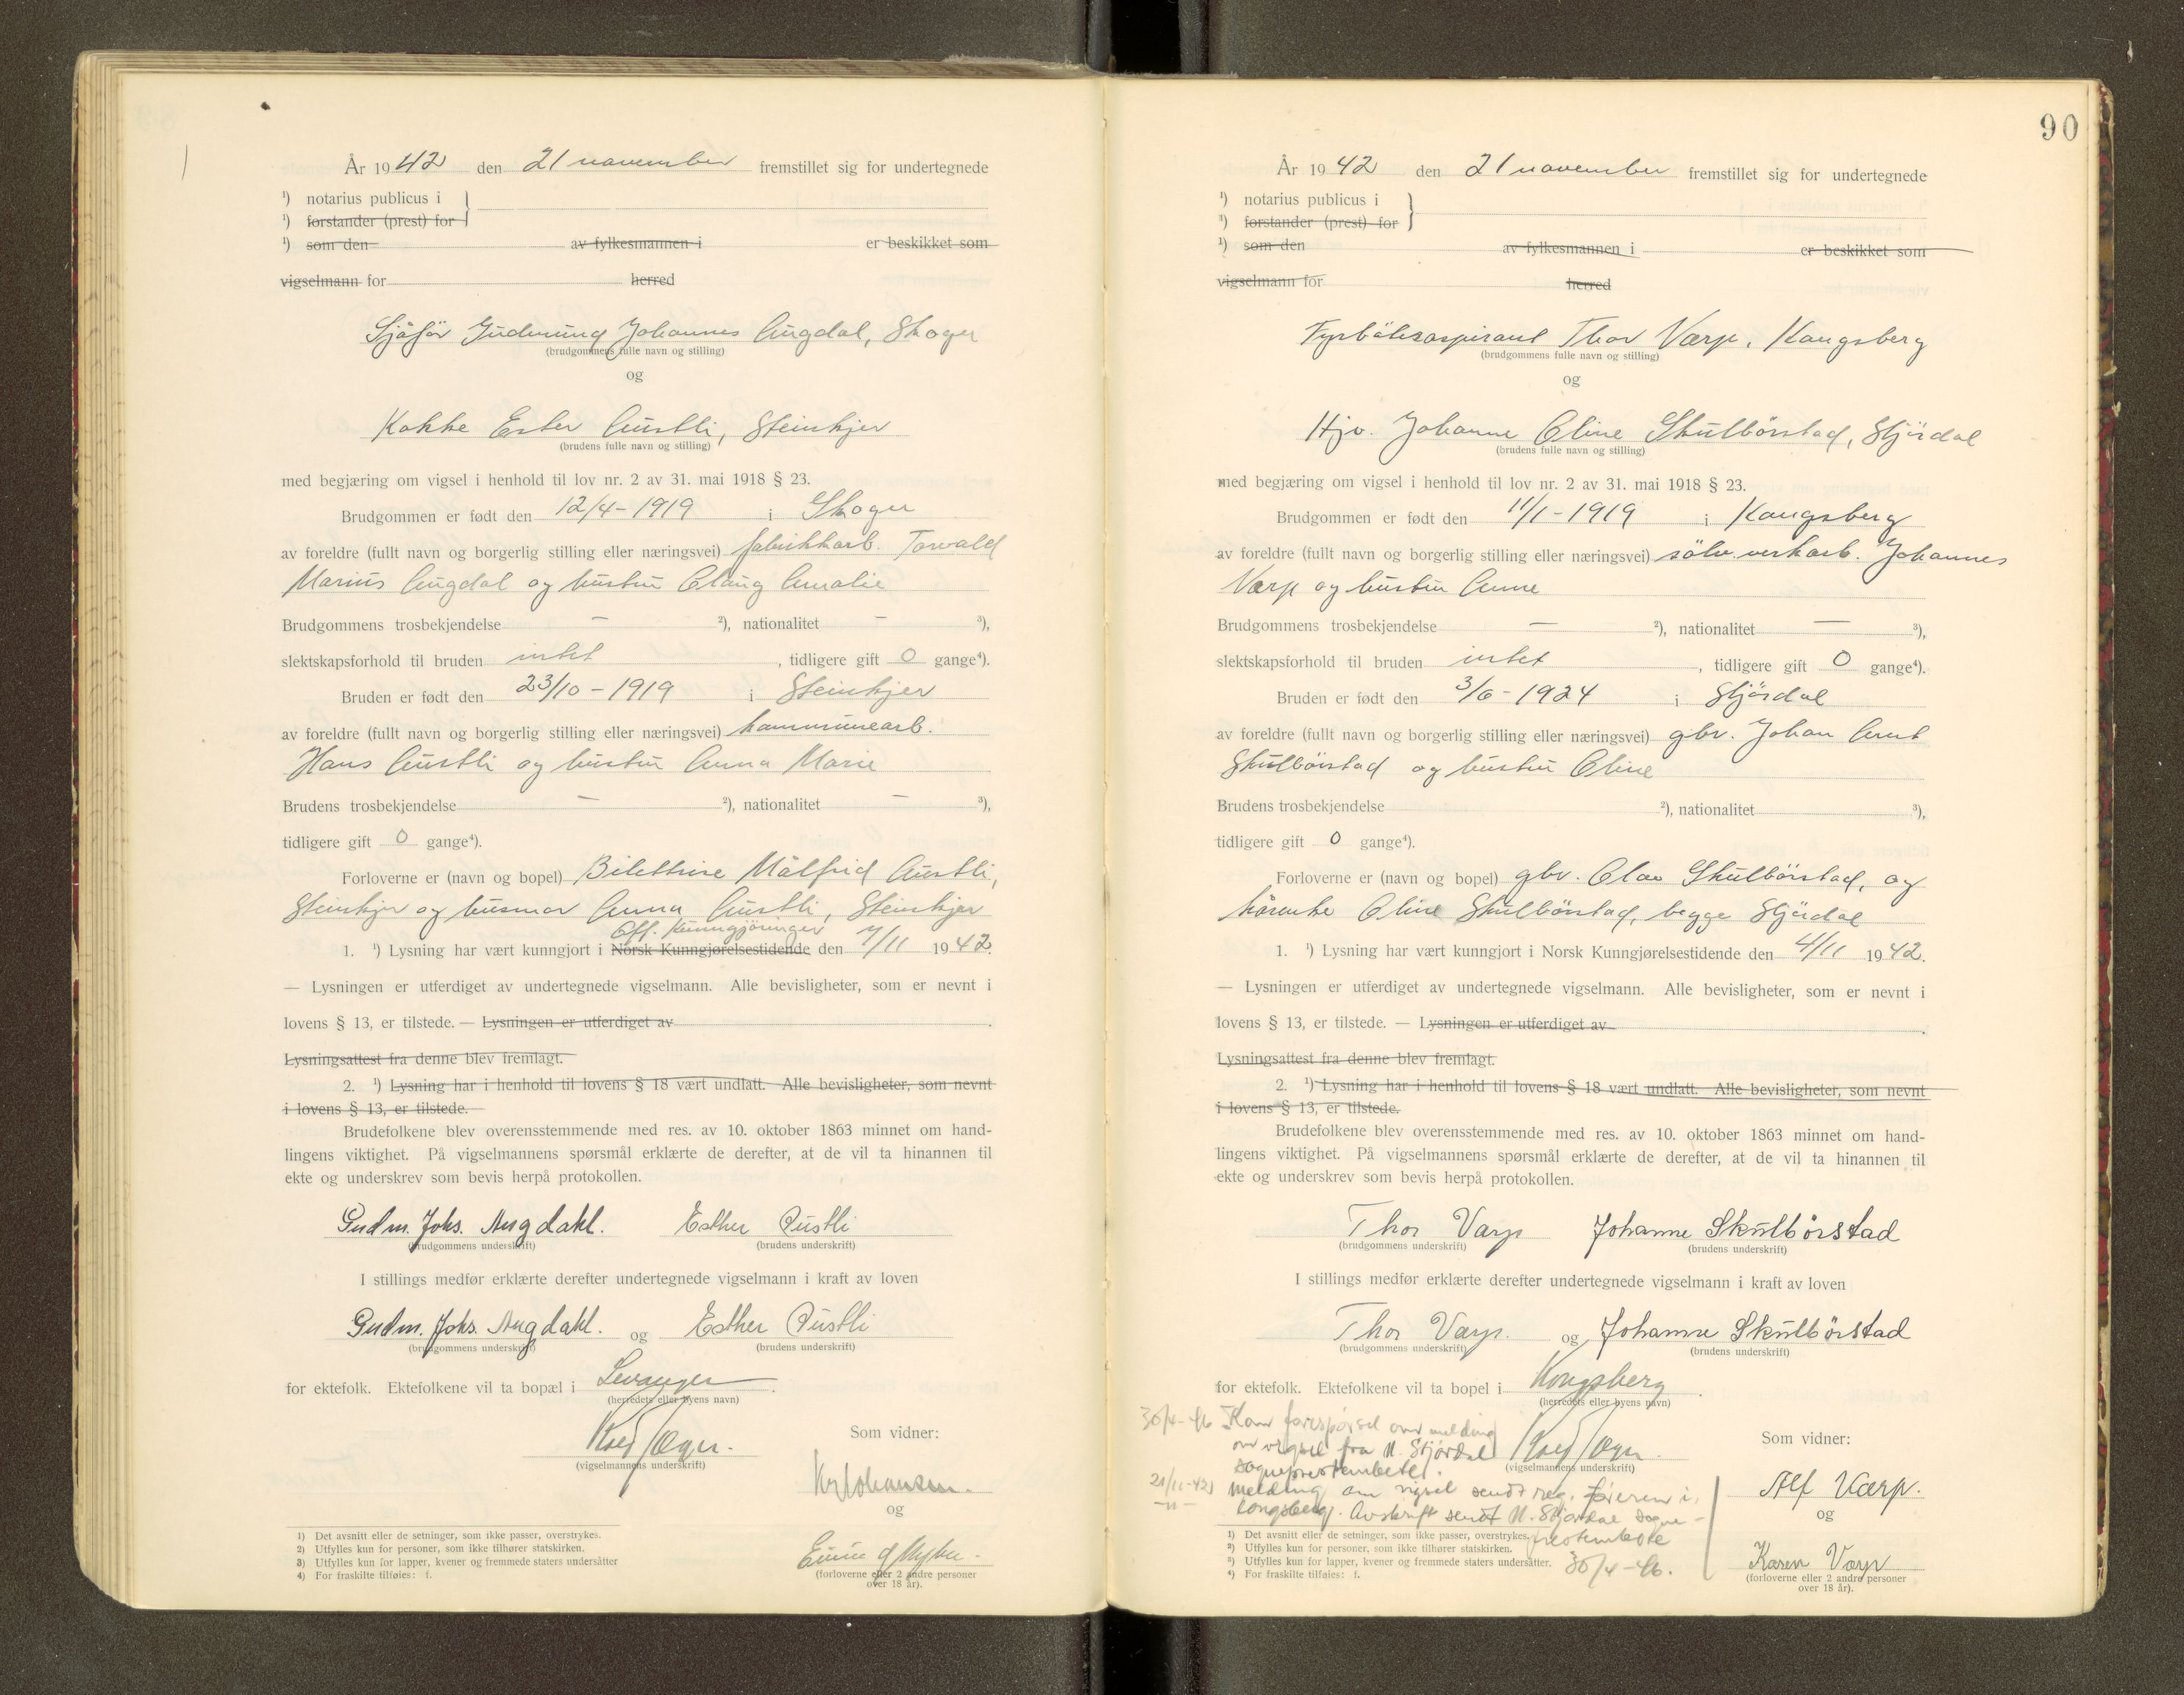 År 1942 den 21 november fremstillet sig for undertegnede
¹) notarius publicus i
¹) forstander (prest) for
¹) som den av fylkesmannen i er beskikket som
vigselmann for herred
Sjåfør Gudmund Johannes Augdal, Skoger
(brudgommens fulle navn og stilling)
og
Kokke Ester Austli, Steinkjer
(brudens fulle navn og stilling)
med begjæring om vigsel i henhold til lov nr. 2 av 31. mai 1918 § 23.
Brudgommen er født den 12/4-1919 i Skoger
av foreldre (fullt navn og borgerlig stilling eller næringsvei) fabrikkarb. Torvald
Marius Augdal og hustru Olaug Amalie
Brudgommens trosbekjendelse — ²), nationalitet — ³),
slektskapsforhold til bruden intet , tidligere gift 0 gange⁴).
Bruden er født den 23/10-1919 i Steinkjer
av foreldre (fullt navn og borgerlig stilling eller næringsvei) kommunearb.
Hans Austli og hustru Anna Marie
Brudens trosbekjendelse — ²), nationalitet — ³),
tidligere gift 0 gange⁴).
Forloverne er (navn og bopel) Bilettrise Målfrid Austli,
Steinkjer og husmor Anna Austli, Steinkjer
Off. Kunngjøringer
1. ¹) Lysning har vært kunngjort i Norsk Kunngjørelsestidende den 7/11 1942.
— Lysningen er utferdiget av undertegnede vigselmann. Alle bevisligheter, som er nevnt i
lovens § 13, er tilstede. — Lysningen er utferdiget av
Lysningsattest fra denne blev fremlagt.
2. ¹) Lysning har i henhold til lovens § 18 vært undlatt. Alle bevisligheter, som nevnt
i lovens § 13, er tilstede.
Brudefolkene blev overensstemmende med res. av 10. oktober 1863 minnet om hand-
lingens viktighet. På vigselmannens spørsmål erklærte de derefter, at de vil ta hinannen til
ekte og underskrev som bevis herpå protokollen.
Gudm. Johs. Augdahl. Esther Austli
(brudgommens underskrift) (brudens underskrift)
I stillings medfør erklærte derefter undertegnede vigselmann i kraft av loven
Gudm. Johs. Augdahl. og Esther Austli
(brudgommens underskrift) (brudens underskrift)
for ektefolk. Ektefolkene vil ta bopæl i Levanger
(herredets eller byens navn)
Som vidner:
(vigselmannens underskrift)
Johansen.
og
(forloverne eller 2 andre personer
over 18 år).
1) Det avsnitt eller de setninger, som ikke passer, overstrykes.
2) Utfylles kun for personer, som ikke tilhører statskirken.
3) Utfylles kun for lapper, kvener og fremmede staters undersåtter
4) For fraskilte tilføies: f.
90
År 1942 den 21 november fremstillet sig for undertegnede
¹) notarius publicus i
¹) forstander (prest) for
¹) som den av fylkesmannen i er beskikket som
vigselmann for herred
Fyrbøteraspirant Thor Værp, Kongsberg
(brudgommens fulle navn og stilling)
og
Hjv. Johanne Oline Skulbörstad, Stjördal
(brudens fulle navn og stilling)
med begjæring om vigsel i henhold til lov nr. 2 av 31. mai 1918 § 23.
Brudgommen er født den 11/1-1919 i Kongsberg
av foreldre (fullt navn og borgerlig stilling eller næringsvei) sölvverkarb. Johannes
Værp og hustru Anne
Brudgommens trosbekjendelse — ²), nationalitet — ³),
slektskapsforhold til bruden intet , tidligere gift 0 gange⁴).
Bruden er født den 3/6-1924 i Stjördal
av foreldre (fullt navn og borgerlig stilling eller næringsvei) gbr. Johan Arnt
Skulbörstad og hustru Oline
Brudens trosbekjendelse ²), nationalitet ³),
tidligere gift 0 gange⁴).
Forloverne er (navn og bopel) gbr. Olav Skulbörstad, og
kårenke Oline Skulbörstad, begge Stjördal
1. ¹) Lysning har vært kunngjort i Norsk Kunngjørelsestidende den 4/11 1942.
— Lysningen er utferdiget av undertegnede vigselmann. Alle bevisligheter, som er nevnt i
lovens § 13, er tilstede. — Lysningen er utferdiget av
Lysningsattest fra denne blev fremlagt.
2. ¹) Lysning har i henhold til lovens § 18 vært undlatt. Alle bevisligheter, som nevnt
i lovens § 13, er tilstede.
Brudefolkene blev overensstemmende med res. av 10. oktober 1863 minnet om hand-
lingens viktighet. På vigselmannens spørsmål erklærte de derefter, at de vil ta hinannen til
ekte og underskrev som bevis herpå protokollen.
Thor Værp Johanne Skulbörstad
(brudgommens underskrift) (brudens underskrift)
I stillings medfør erklærte derefter undertegnede vigselmann i kraft av loven
Thor Værp. og Johanne Skulbörstad
(brudgommens underskrift) (brudens underskrift)
for ektefolk. Ektefolkene vil ta bopel i Kongsberg
(herredets eller byens navn)
30/4-46 Kom forespørsel om melding
om vigsel fra N. Stjørdal
sogneprestembete.
(vigselmannens underskrift)
21/11-42 melding om vigsel sendt reg. føreren i
Kongsberg. Avskrift sendt N. Stjørdal sogne-
prestembete
30/4-46.
Som vidner:
Alf Værp.
og
Karen Værp
(forloverne eller 2 andre personer
over 18 år).
¹) Det avsnitt eller de setninger, som ikke passer, overstrykes.
²) Utfylles kun for personer, som ikke tilhører statskirken.
³) Utfylles kun for lapper, kvener og fremmede staters undersåtter.
⁴) For fraskilte tilføies: f.